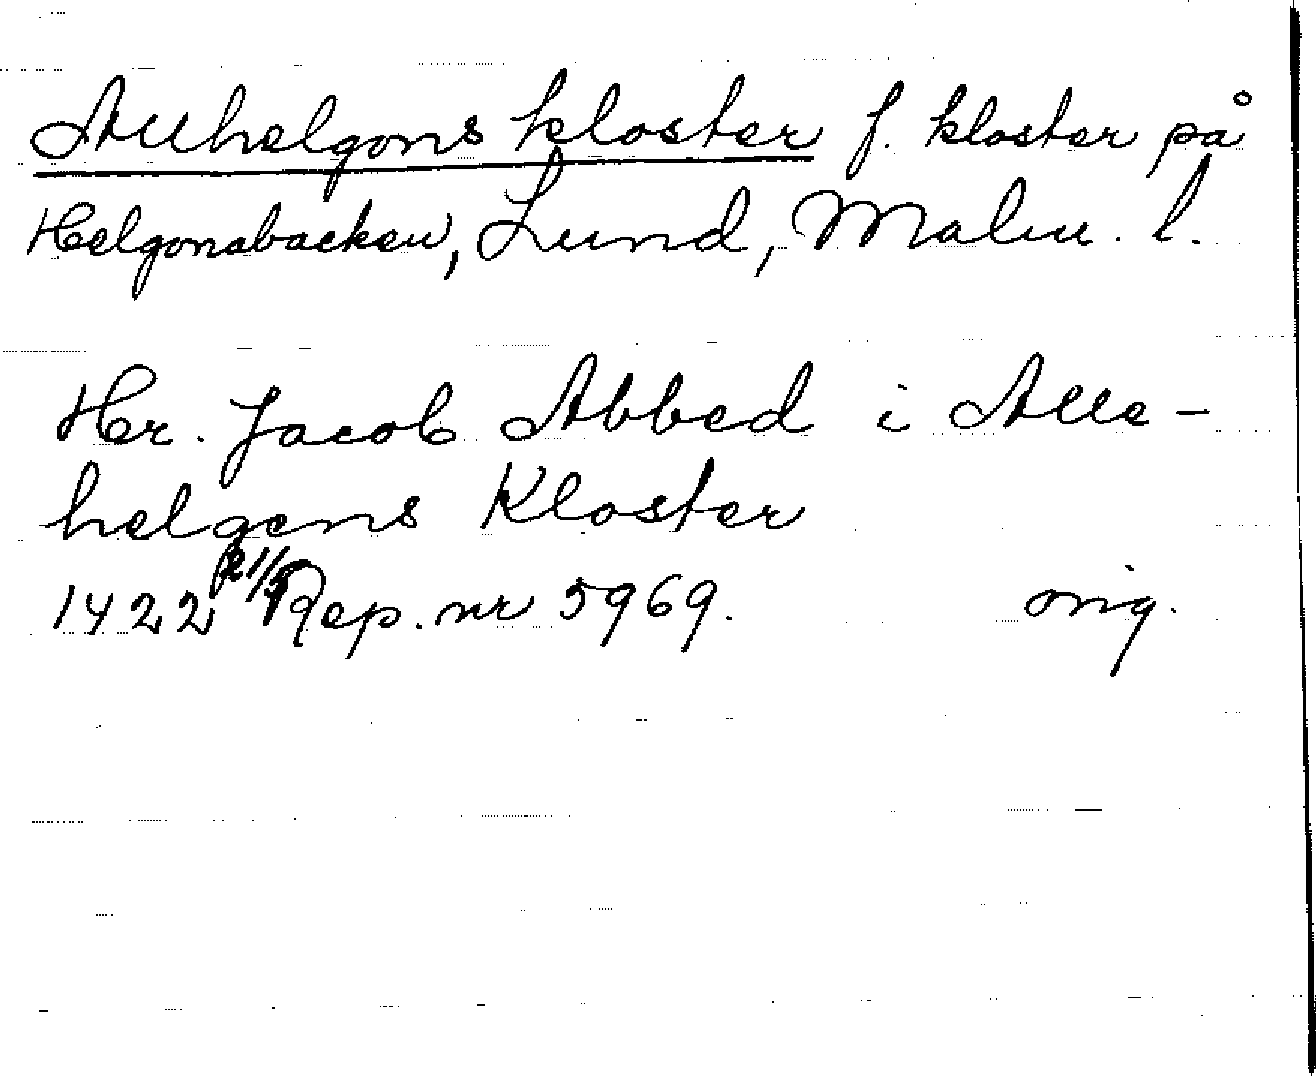 Allhelgons kloster f. kloster på
Helgonabacken, Lund, Malm. l.
Hr. Jacob Abbed i Alle-
helgens Kloster
1422 21/5 Rep. nr 5969. orig.